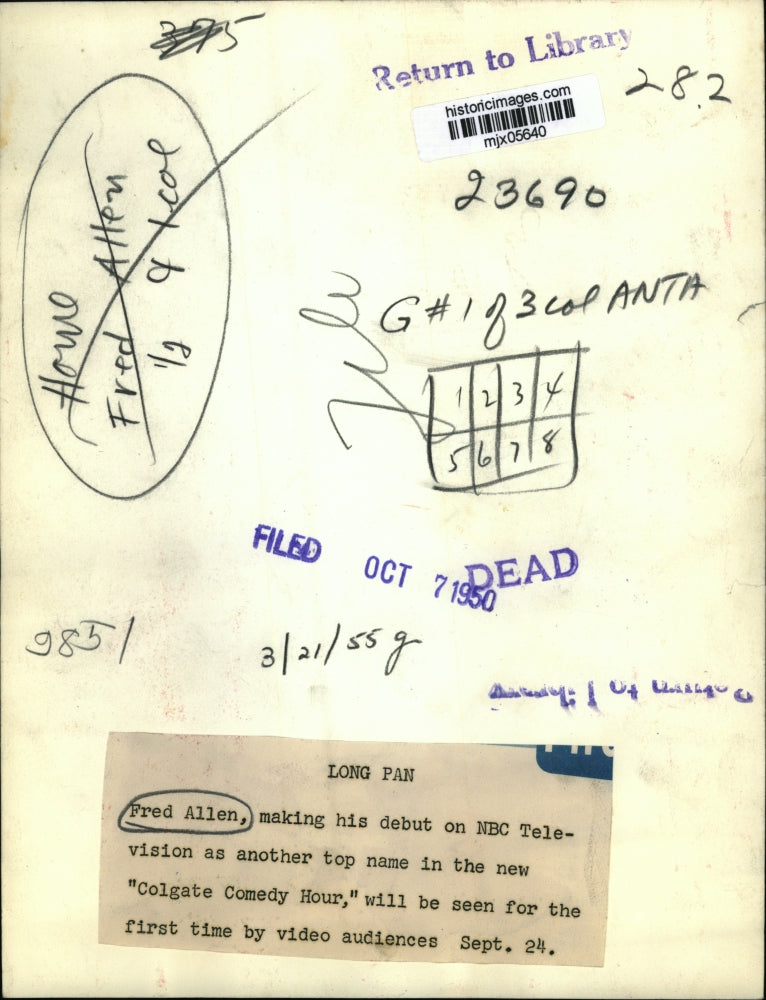 375
Return to Library
historicimages.com
mjx05640
28.2
23690
Howe
Fred Allen
1/2 4 1 col
G#1 of 3 col ANTA
1 2 3 4
5 6 7 8
FILED OCT 7 1950
DEAD
9851
3/21/55 g
Return to Library
LONG PAN
Fred Allen, making his debut on NBC Tele-
vision as another top name in the new
"Colgate Comedy Hour," will be seen for the
first time by video audiences Sept. 24.